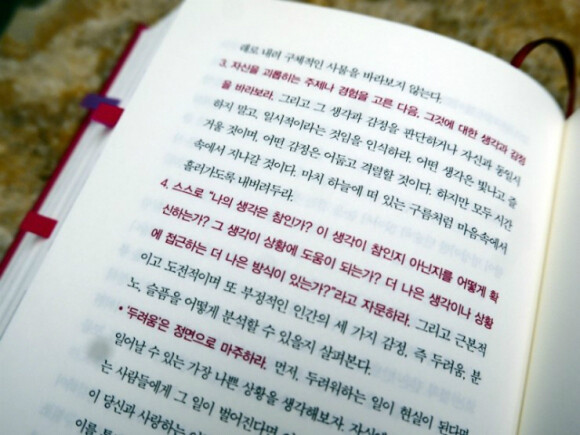 래로 내려 구체적인 사물을 바라보지 않는다.
3. 자신을 괴롭히는 주제나 경험을 고른 다음, 그것에 대한 생각과 감정
을 바라보라. 그리고 그 생각과 감정을 판단하거나 자신과 동일시
하지 말고, 일시적이라는 것임을 인식하라. 어떤 생각은 빛나고 즐
거울 것이며, 어떤 감정은 어둡고 격렬할 것이다. 하지만 모두 시간
속에서 지나갈 것이다. 마치 하늘에 떠 있는 구름처럼 마음속에서
흘러가도록 내버려두라.
4. 스스로 “나의 생각은 참인가? 이 생각이 참인지 아닌지를 어떻게 확
신하는가? 그 생각이 상황에 도움이 되는가? 더 나은 생각이나 상황
에 접근하는 더 나은 방식이 있는가?”라고 자문하라. 그리고 근본적
이고 도전적이며 또 부정적인 인간의 세 가지 감정, 즉 두려움, 분
노, 슬픔을 어떻게 분석할 수 있을지 살펴본다.
• ‘두려움’은 정면으로 마주하라. 먼저, 두려워하는 일이 현실이 된다면
일어날 수 있는 가장 나쁜 상황을 생각해보자. 자신에
는 사람들에게 그 일이 벌어진다면
이 당신과 사랑하는
이를